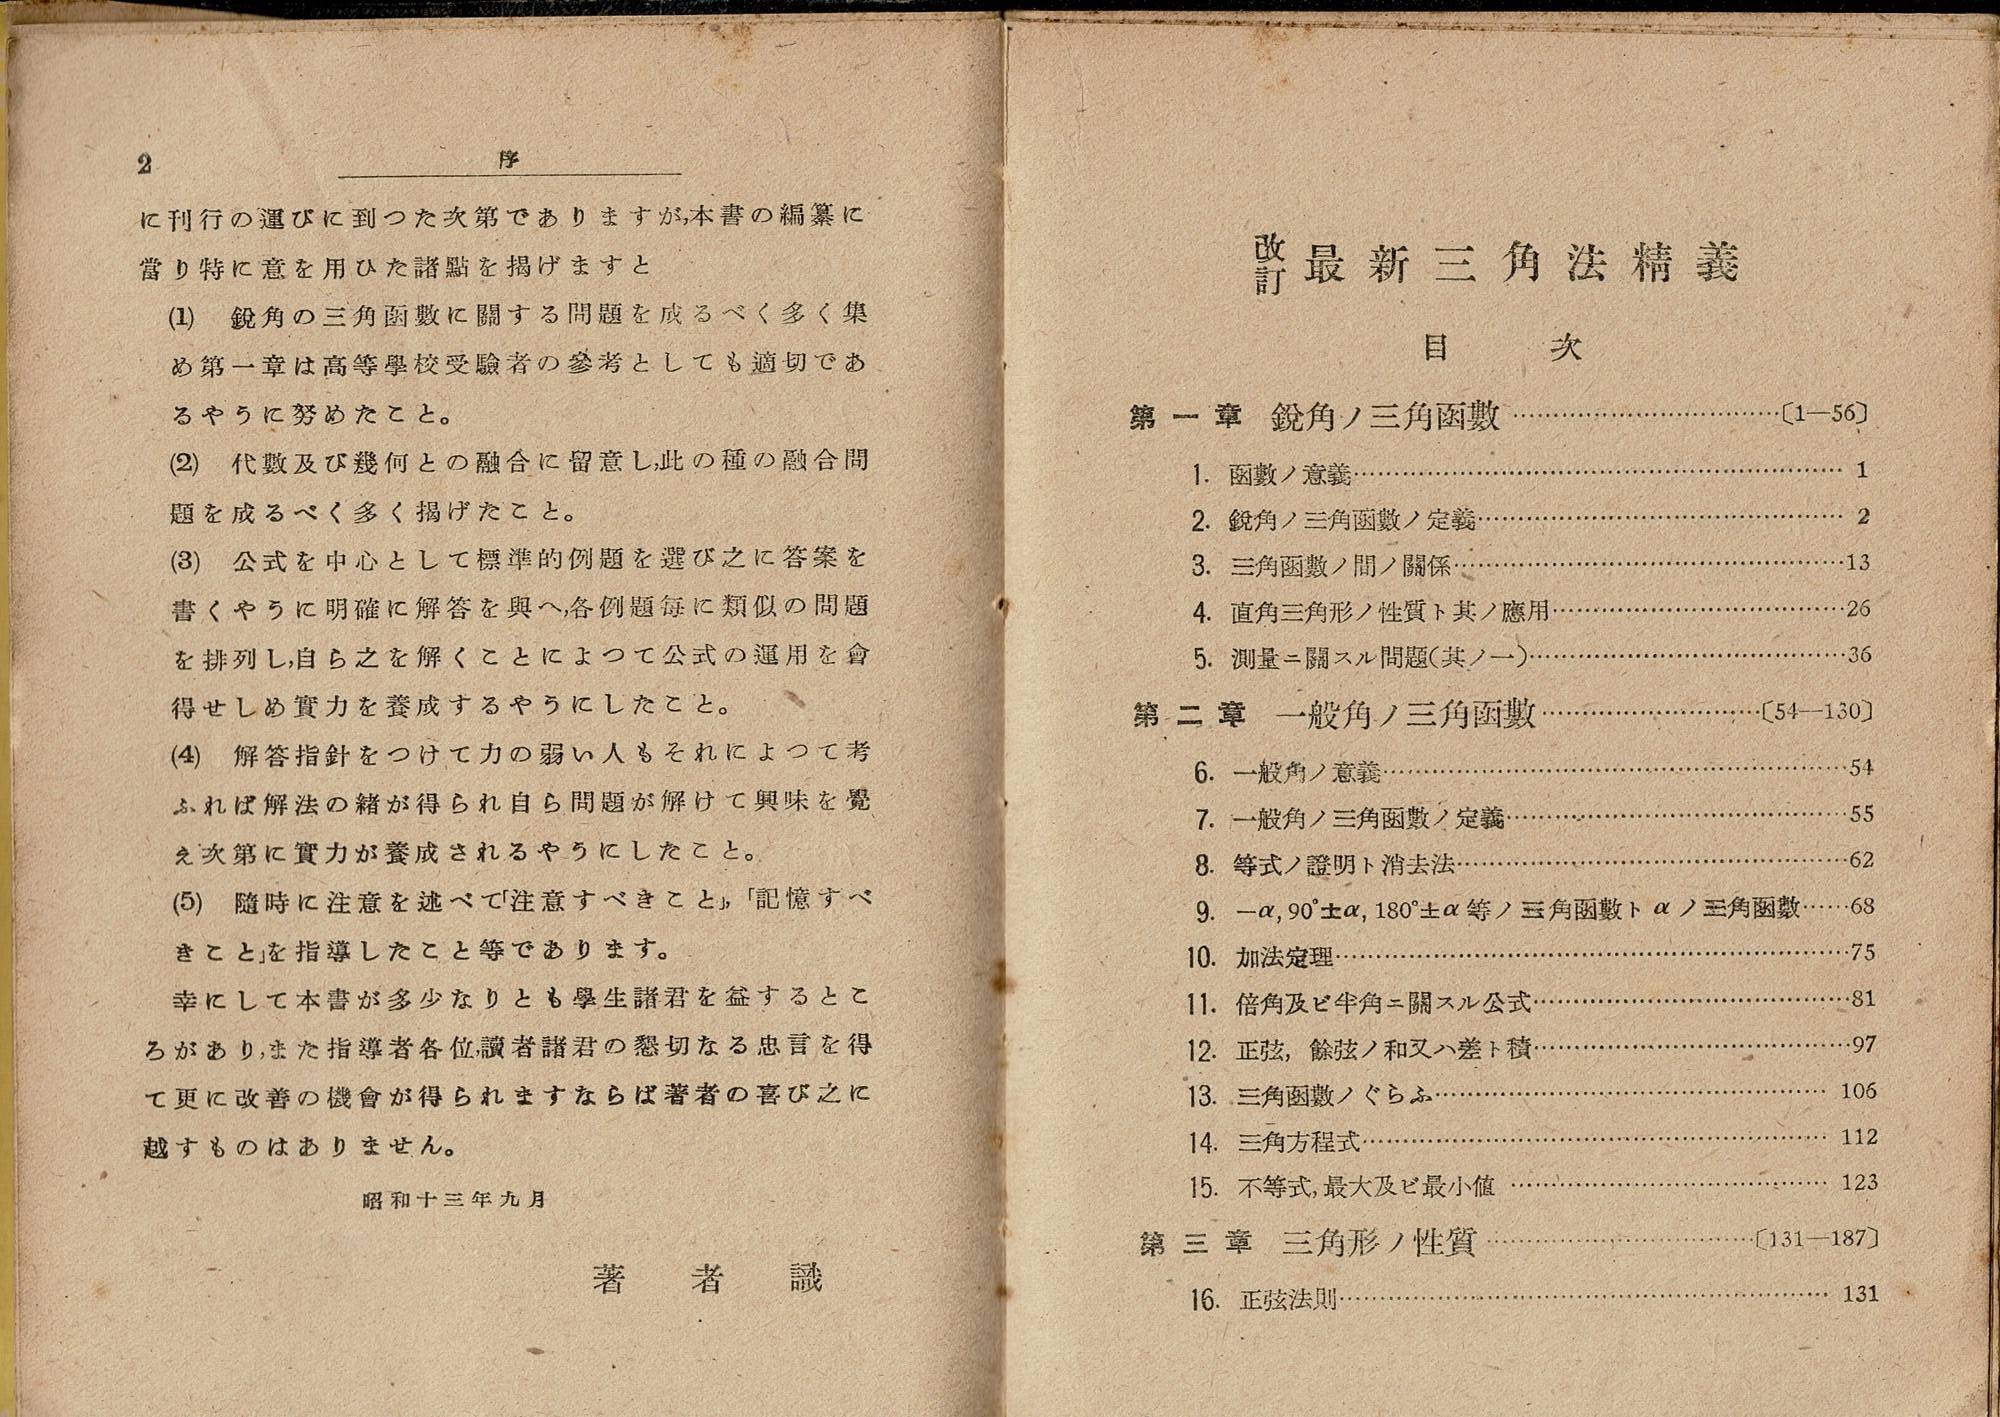 2
序
に刊行の運びに到つた次第でありますが,本書の編纂に
當り特に意を用ひた諸點を揭げますと
(1) 鋭角の三角函數に關する問題を成るべく多く集
め第一章は高等學校受驗者の參考としても適切であ
るやうに努めたこと。
(2) 代數及び幾何との融合に留意し,此の種の融合問
題を成るべく多く揭げたこと。
(3) 公式を中心として標準的例題を選び之に答案を
書くやうに明確に解答を與へ,各例題每に類似の問題
を排列し,自ら之を解くことによつて公式の運用を會
得せしめ實力を養成するやうにしたこと。
(4) 解答指針をつけて力の弱い人もそれによつて考
ふれば解法の緒が得られ自ら問題が解けて興味を覺
え次第に實力が養成されるやうにしたこと。
(5) 隨時に注意を述べて「注意すべきこと」,「記憶すべ
きこと」を指導したこと等であります。
幸にして本書が多少なりとも學生諸君を益するとこ
ろがあり,また指導者各位,讀者諸君の懇切なる忠言を得
て更に改善の機會が得られますならば著者の喜び之に
越すものはありません。
昭和十三年九月
著者識
改訂 最新三角法精義
目次
第一章 鋭角ノ三角函數……〔1—56〕
1. 函數ノ意義…… 1
2. 鋭角ノ三角函數ノ定義…… 2
3. 三角函數ノ間ノ關係……13
4. 直角三角形ノ性質ト其ノ應用……26
5. 測量ニ關スル問題(其ノ一)……36
第二章 一般角ノ三角函數……〔54—130〕
6. 一般角ノ意義……54
7. 一般角ノ三角函數ノ定義……55
8. 等式ノ證明ト消去法……62
9. −α, 90°±α, 180°±α 等ノ三角函數ト α ノ三角函數……68
10. 加法定理……75
11. 倍角及ビ半角ニ關スル公式……81
12. 正弦, 餘弦ノ和又ハ差ト積……97
13. 三角函數ノぐらふ…… 106
14. 三角方程式…… 112
15. 不等式, 最大及ビ最小値 …… 123
第三章 三角形ノ性質……〔131—187〕
16. 正弦法則…… 131